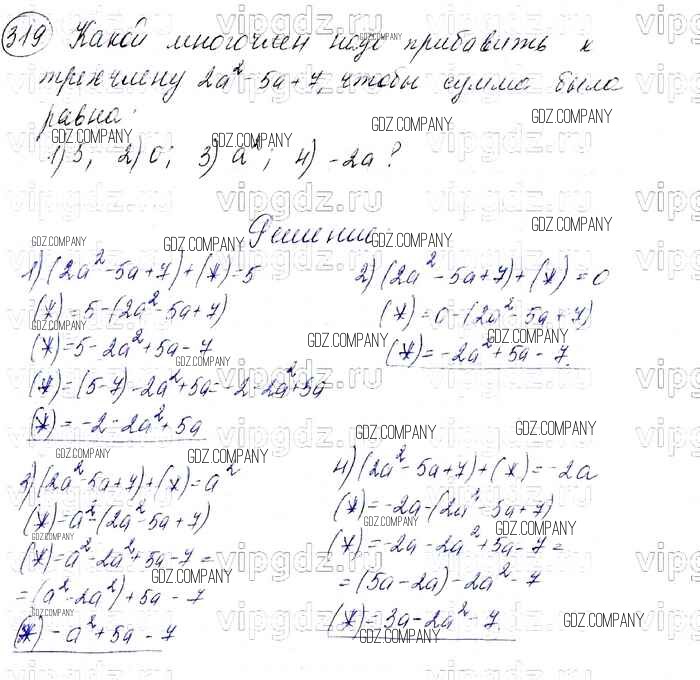 319 Какой многочлен надо прибавить к
трехчлену 2a² - 5a + 7, чтобы сумма была
равна:
1) 5; 2) 0; 3) a²; 4) -2a?
Решение
1) (2a² - 5a + 7) + (*) = 5
(*) = 5 - (2a² - 5a + 7)
(*) = 5 - 2a² + 5a - 7
(*) = (5 - 7) - 2a² + 5a = -2 - 2a² + 5a
(*) = -2 - 2a² + 5a
2) (2a² - 5a + 7) + (*) = 0
(*) = 0 - (2a² - 5a + 7)
(*) = -2a² + 5a - 7.
3) (2a² - 5a + 7) + (*) = a²
(*) = a² - (2a² - 5a + 7)
(*) = a² - 2a² + 5a - 7 =
= (a² - 2a²) + 5a - 7
(*) - a² + 5a - 7
4) (2a² - 5a + 7) + (*) = -2a
(*) = -2a - (2a² - 5a + 7)
(*) = -2a - 2a² + 5a - 7 =
= (5a - 2a) - 2a² - 7
(*) = 3a - 2a² - 7.
vipgdz.ru
GDZ.COMPANY